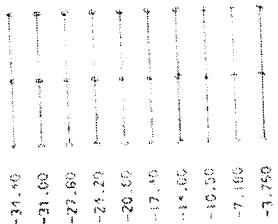 -34.40
-31.00
-27.60
-24.20
-20.80
-17.40
-14.00
-10.60
-7.160
-3.760